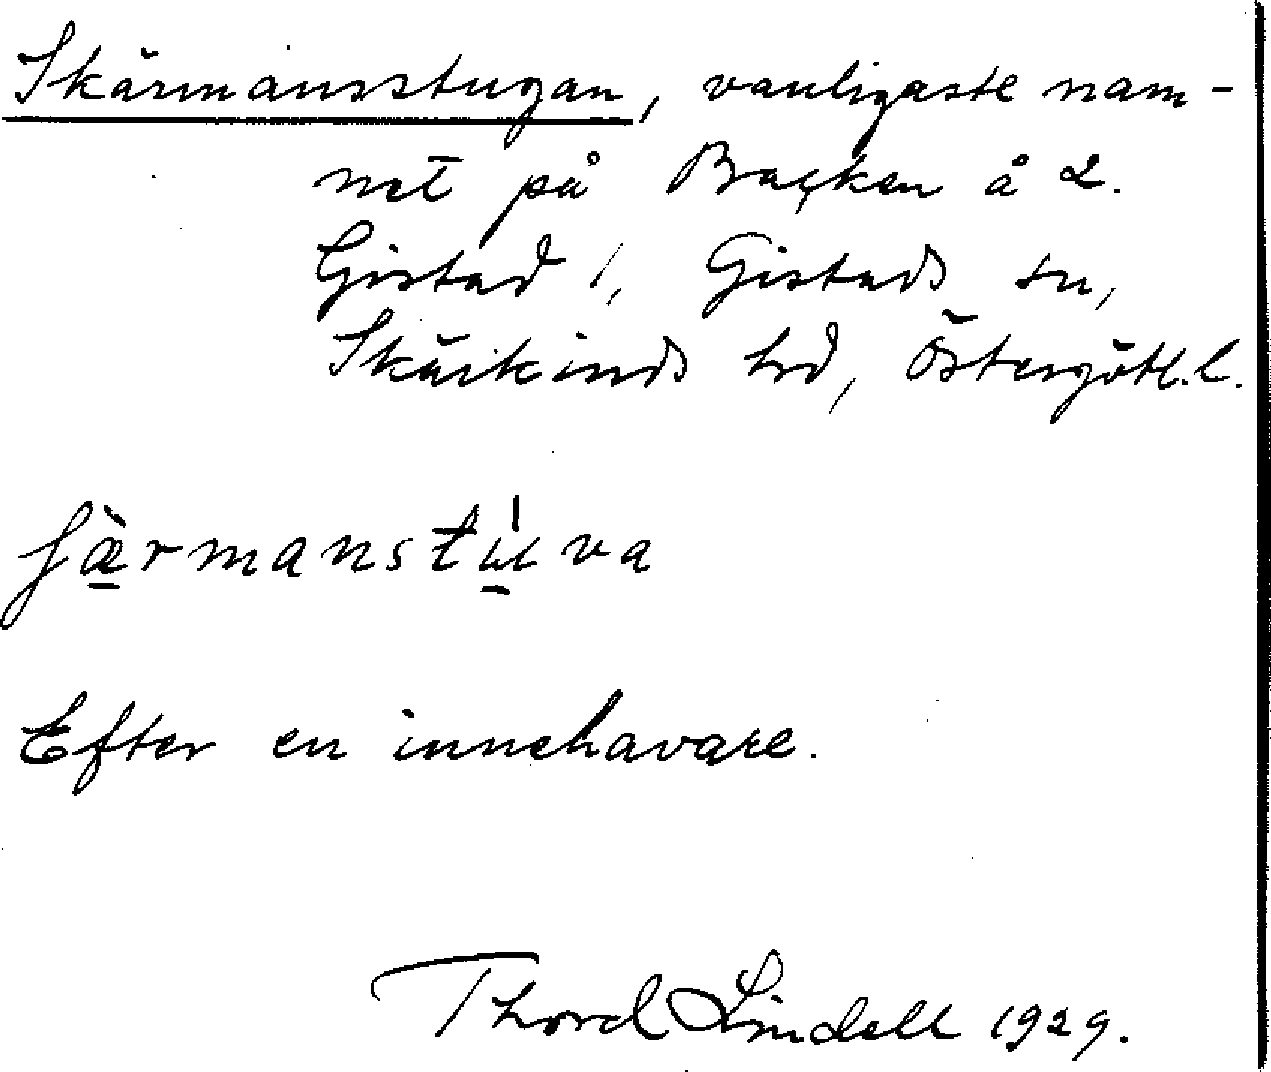 Skärmansstugan, vanligaste nam-
net på Backen å 2.
Gistad 1, Gistads sn,
Skärkinds hd, Östergötl.l.
ʃæ̀rmanstu̍va
Efter en innehavare.
Thord Lindell 1929.